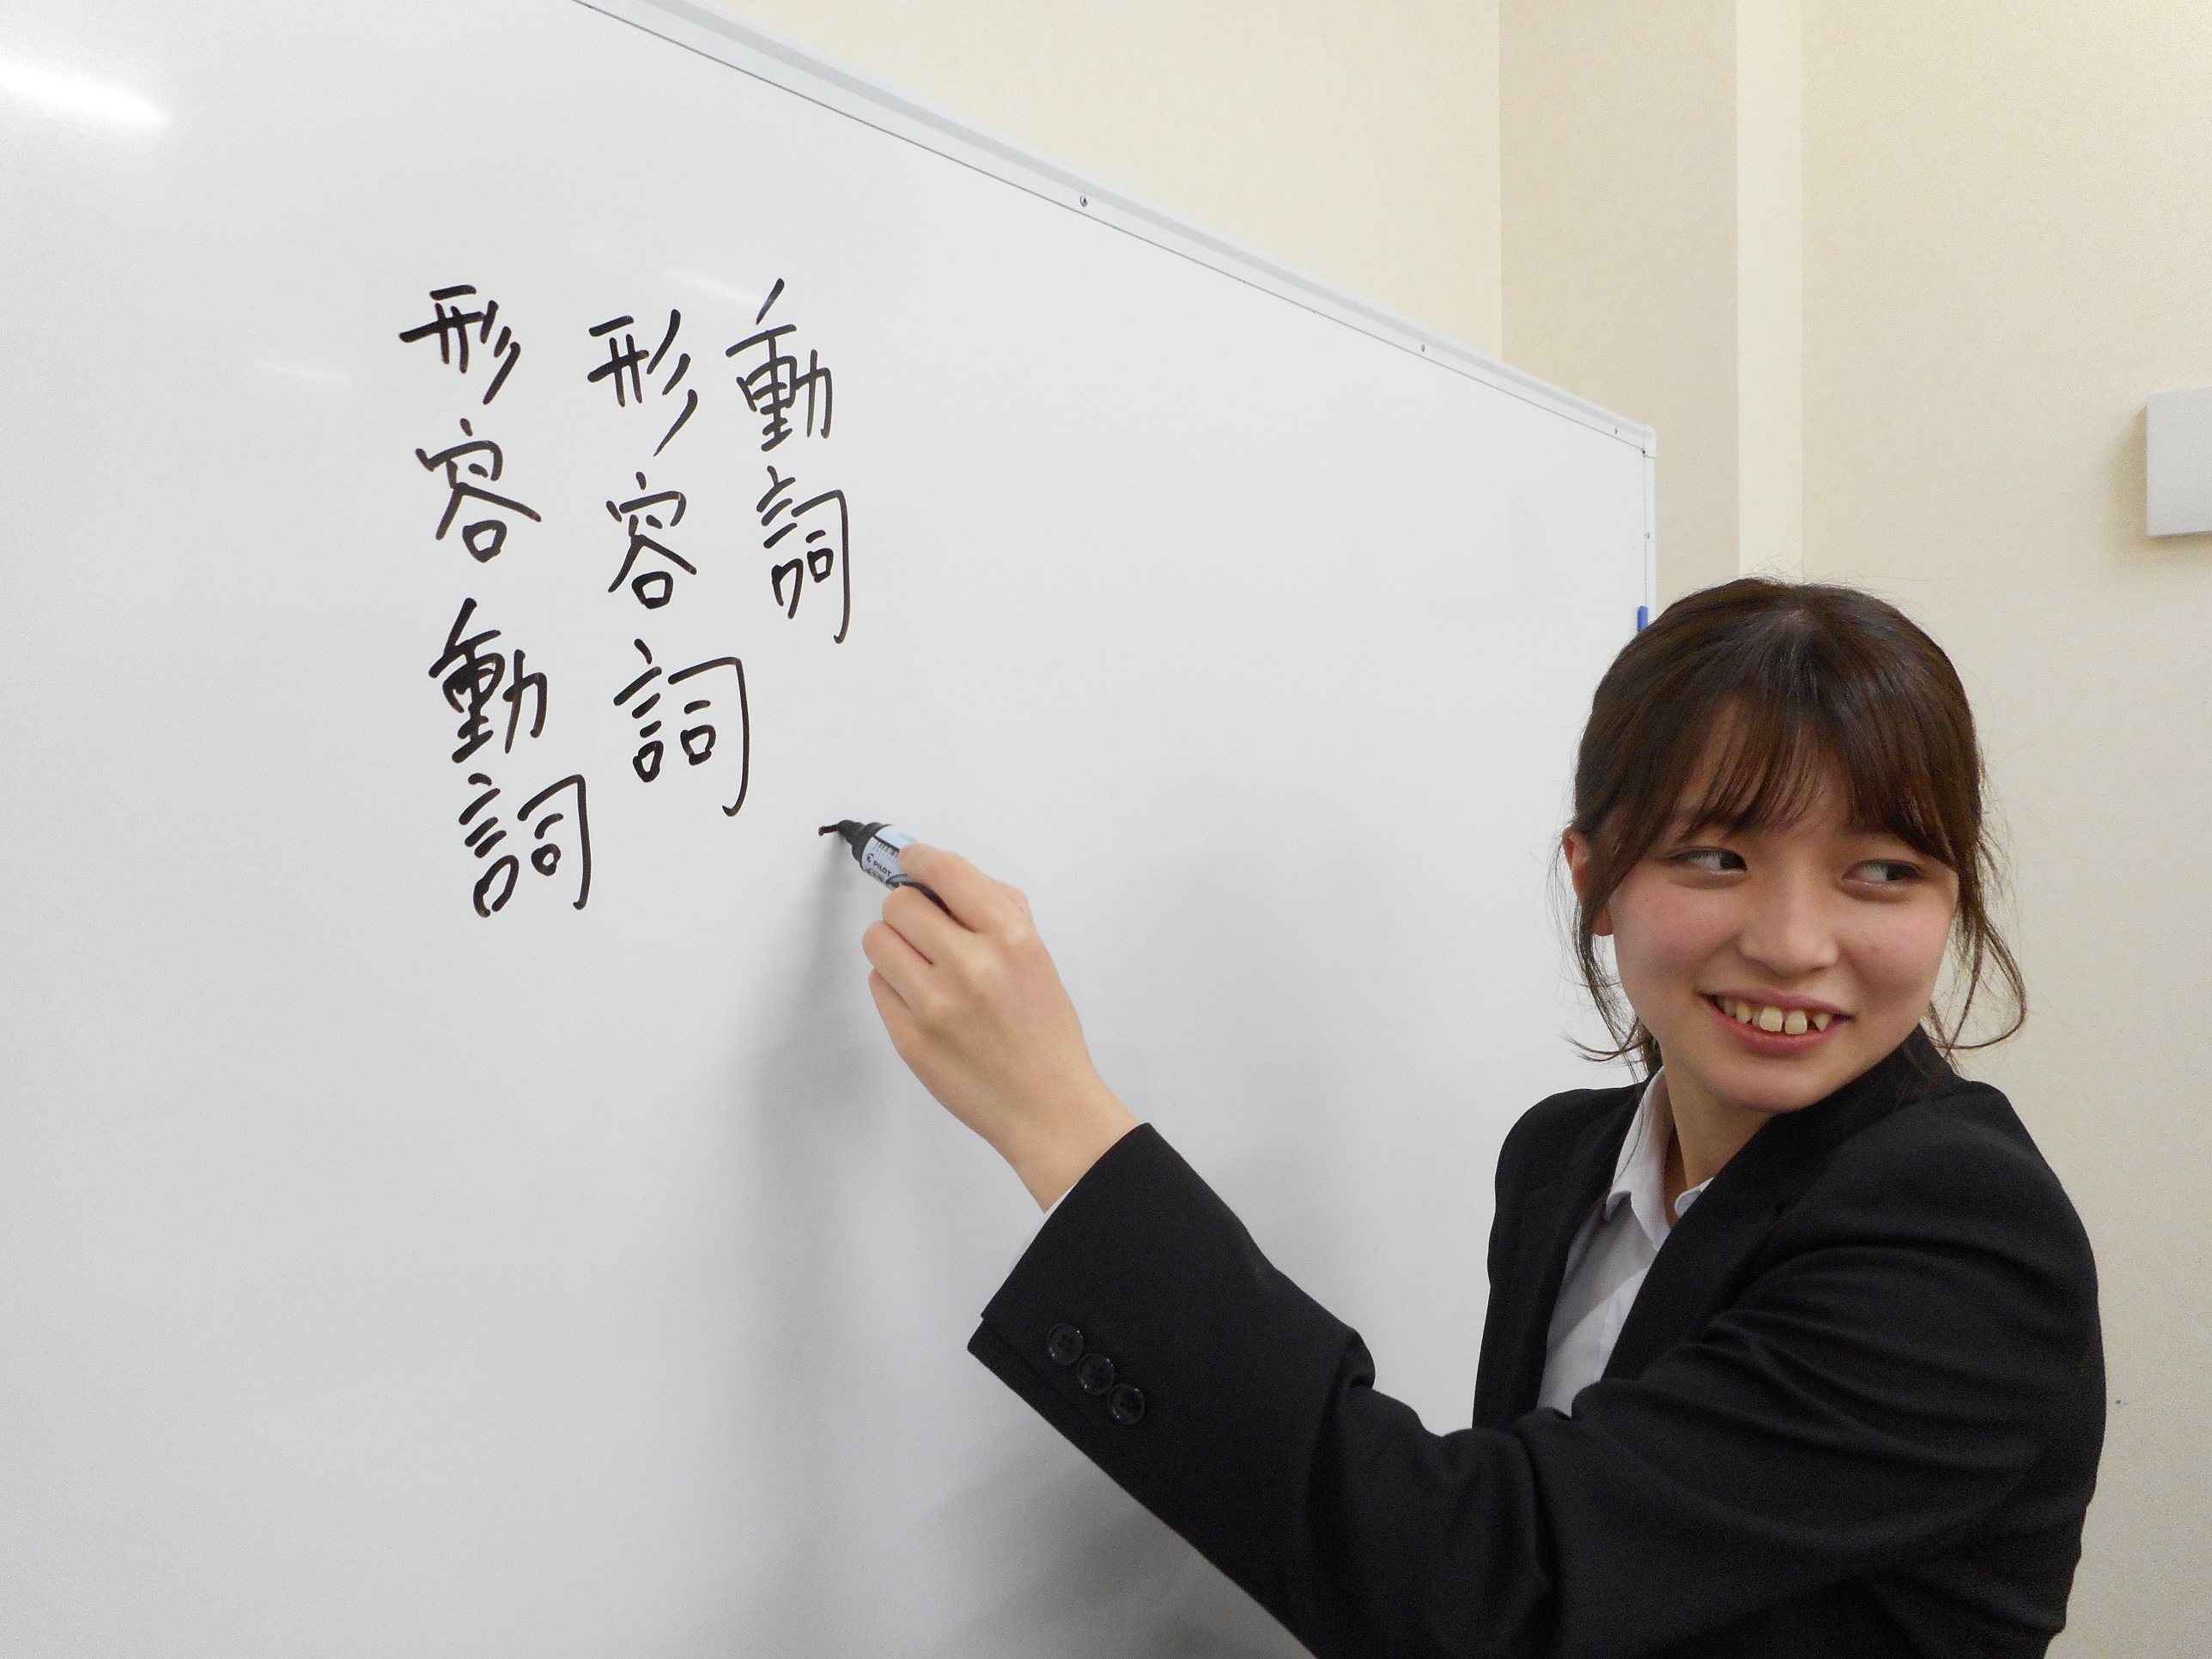 動詞
形容詞
形容動詞
PILOT